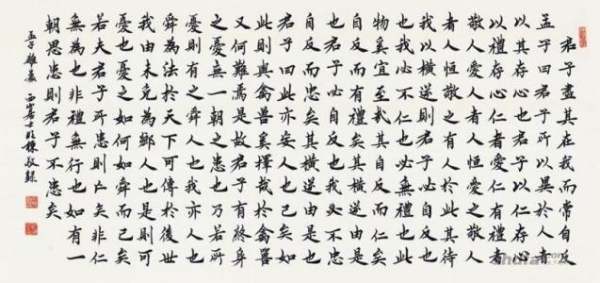 君子盡其在我而常自反
孟子曰君子所以異於人者
以其存心也君子以仁存心
以禮存心仁者愛人有禮者
敬人愛人者人恒愛之敬人
者人恒敬之有人於此其待
我以橫逆則君子必自反也
我必不仁也必無禮也此
物奚宜至哉其自反而仁矣
自反而有禮矣其橫逆由是
也君子必自反也我必不忠
自反而忠矣其橫逆由是也
君子曰此亦妄人也已矣如
此則與禽獸奚擇哉於禽獸
又何難焉是故君子有終身
之憂無一朝之患也乃若所
憂則有之舜人也我亦人也
舜為法於天下可傳於後世
我由未免為鄉人也是則可
憂也憂之如何如舜而已矣
若夫君子所患則亡矣非仁
無為也非禮無行也如有一
朝之患則君子不患矣
孟子離婁